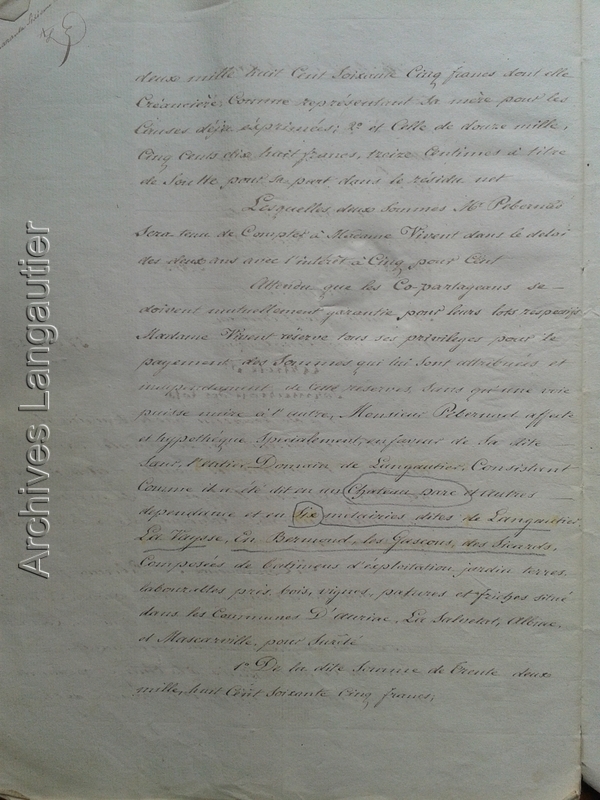 deux mille huit Cent Soixante Cinq francs dont elle
Créancière, Comme représentant Sa mère pour les
Causes déja exprimées; 2º et Celle de douze mille,
Cinq Cents dix huit francs, treize Centimes à titre
de Soulte pour Sa part dans le résidu net
Lesquelles deux Sommes Mr. Pebernad
Sera tenu de Compter à Madame Vivent dans le délai
des deux ans avec l'intérêt à Cinq pour Cent
Attendu que les Co-partageans se
doivent mutuellement garantie pour leurs lots respectifs
Madame Vivent réserve tous ses privilèges pour le
payement des Sommes qui lui Sont attribuées et
indépendament de cette réserves, Sans qu'une voie
puisse nuire à l'autre, Monsieur Pebernad affecte
et hypothèque Spécialement, en faveur de Sa dite
Sœur, l'entier Domaine de Langautier, Consistant
Comme il a été dit en un Chateau parc et autres
dépendance et en Six métairies dites de Langautier
La Vaysse, En Bermond, les Gascons, des Sicards,
Composées de batimens d'éxploitation jardin terres
labourables prés, bois, vignes, patures et friches situé
dans les Communes D'Auriac, La Salvetat,
et Mascarville, pour Sureté
1º De la dite Somme de trente deux
mille, huit Cent Soixante Cinq francs;
Archives Langautier